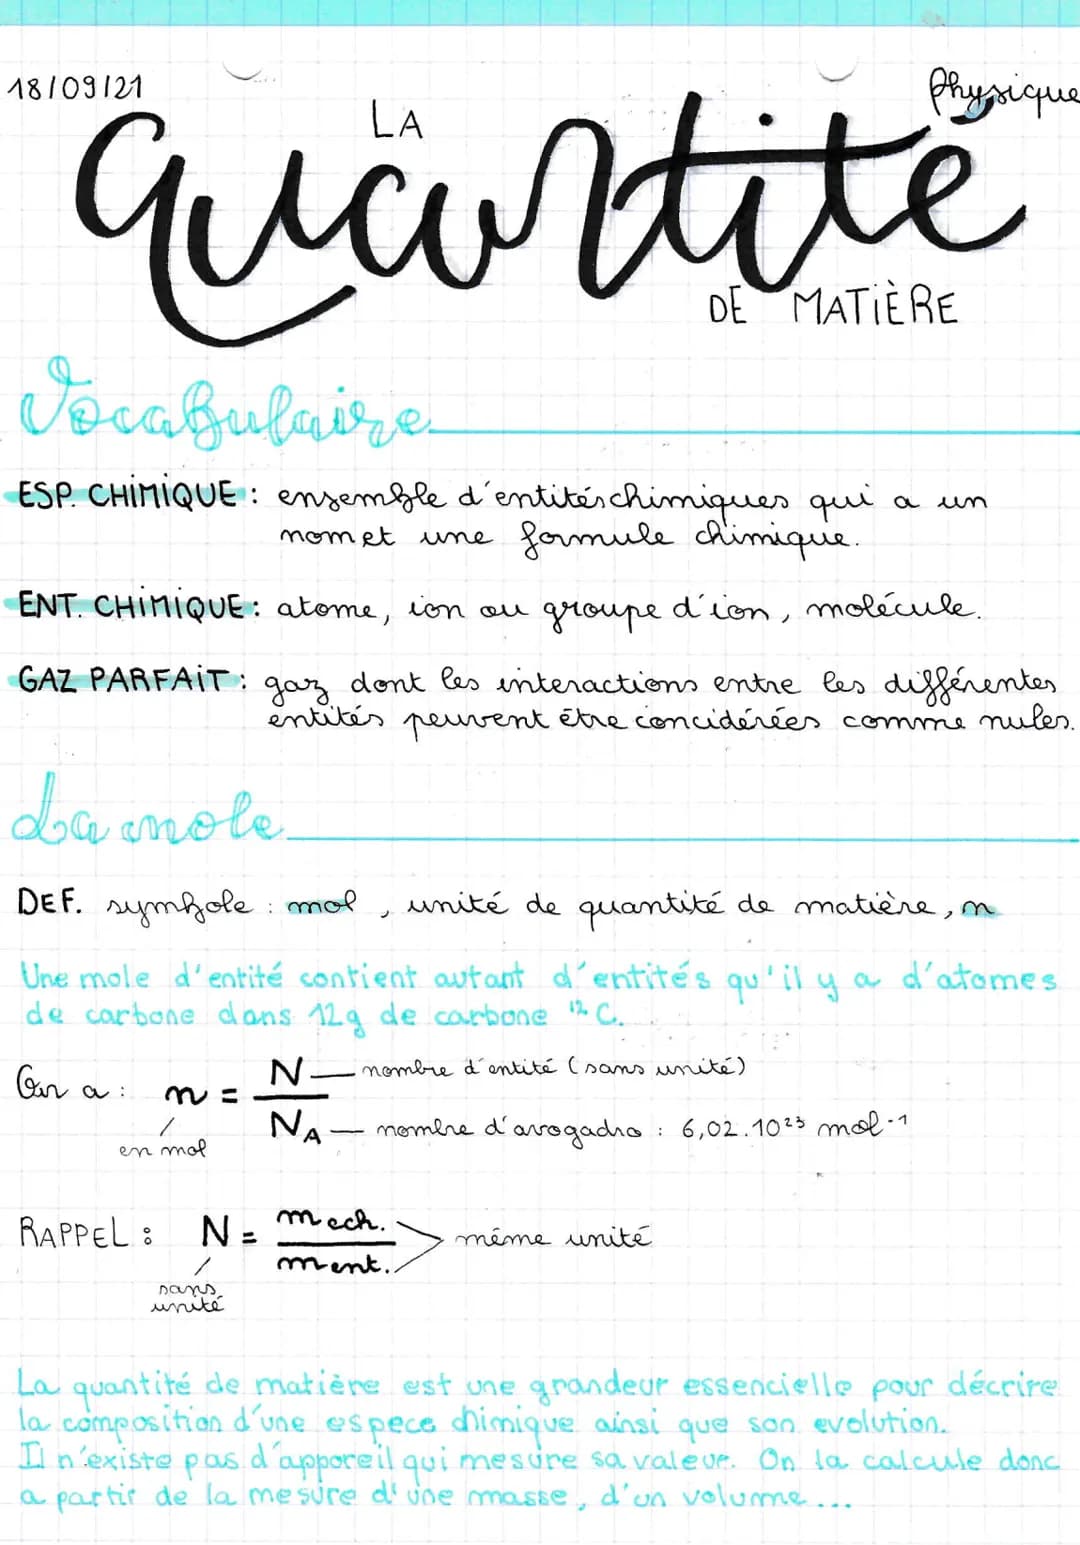 18/09/21
Physique
LA
quantité
DE MATIÈRE
Vocabulaire
ESP. CHIMIQUE : ensemble d'entités chimiques qui a un
nom et une formule chimique.
ENT. CHIMIQUE : atome, ion ou groupe d'ion, molécule.
GAZ PARFAIT : gaz dont les interactions entre les différentes
entités peuvent être concidérées comme nules.
La mole
DEF. symbole : mol, unité de quantité de matière, n
Une mole d'entité contient autant d'entités qu'il y a d'atomes
de carbone dans 12g de carbone ¹²C.
On a : n = N — nombre d'entité (sans unité)
NA — nombre d'avogadro : 6,02.10²³ mol-1
en mol
RAPPEL : N = mech. > même unité
ment.
sans
unité
La quantité de matière est une grandeur essencielle pour décrire
la composition d'une espece chimique ainsi que son evolution.
Il n'existe pas d'appareil qui mesure sa valeur. On la calcule donc
a partir de la mesure d'une masse, d'un volume...